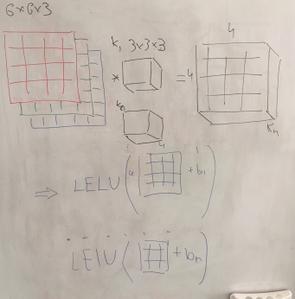 6×6×3
k₁ 3×3×3
* =
4
4
⇒ LELU( + b₁)
LELU( + bₙ)